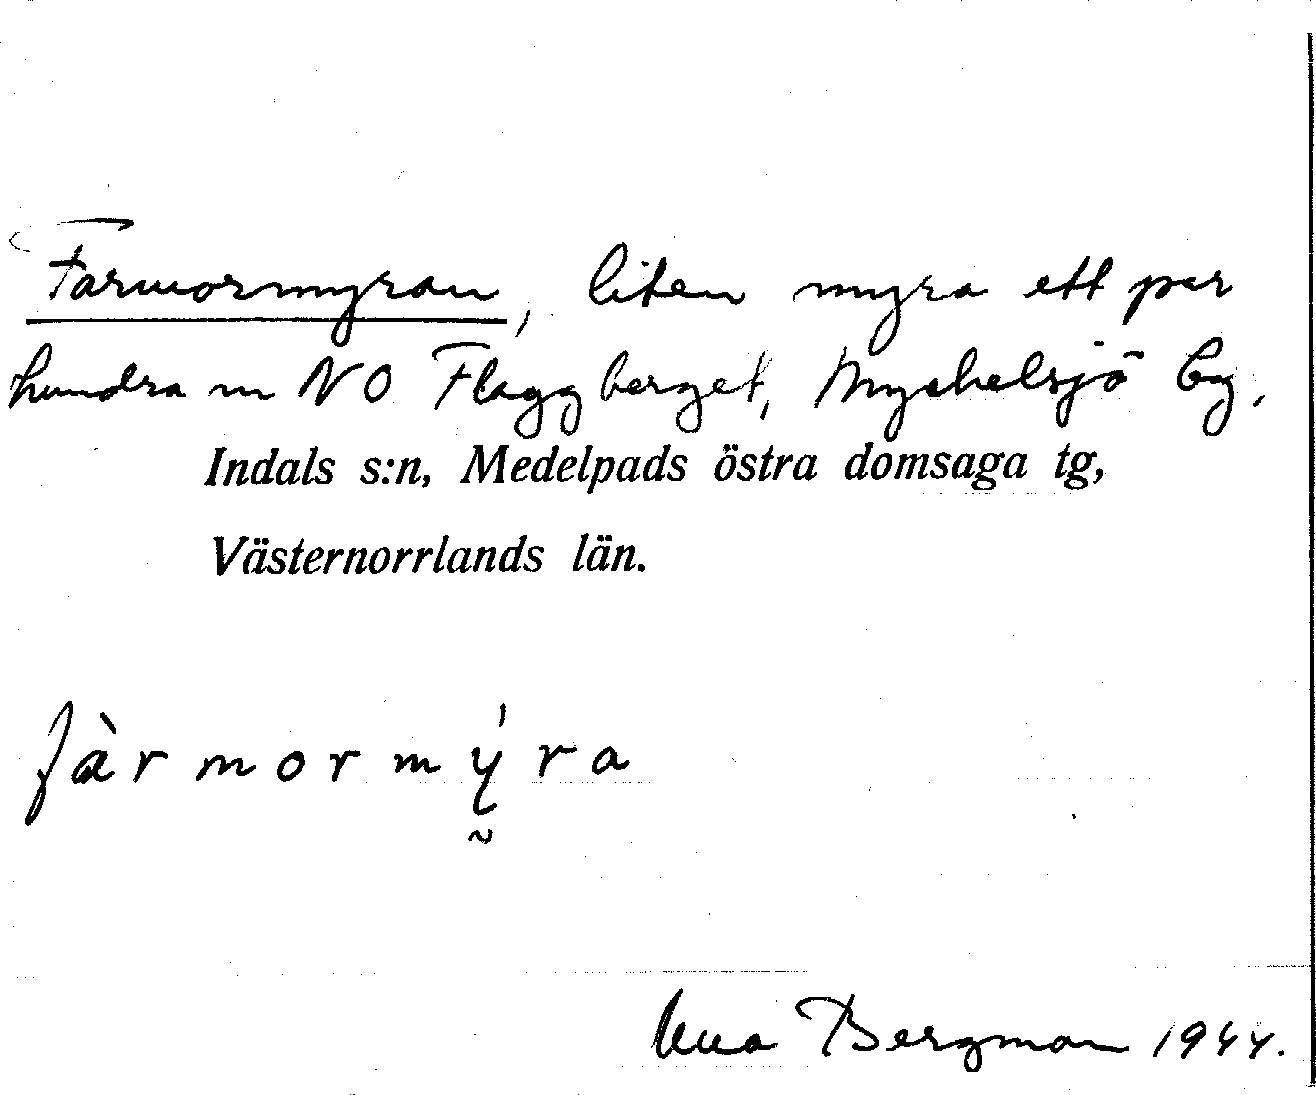 Farmormyran, liten myra ett par
hundra m NO Flaggberget, Myckelsjö by.
Indals s:n, Medelpads östra domsaga tg,
Västernorrlands län.
fàrmormý̰ra
Bergman 1944.